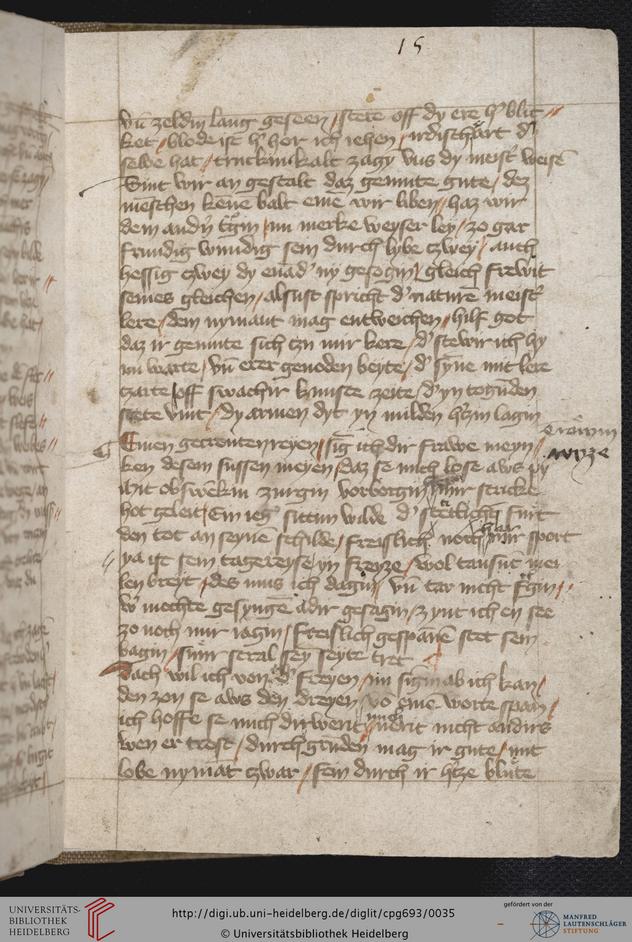 15
vn̄ zeldin lang geseen / stete off dy ere h' blic //
ket / blode ist h' hor ich iehen / irdischart d'
selbe hat / trucken kalt zagy vns dy meist' weise
Sint wir an gestalt daz gemute gute / dez
menschen kēne balt eme wir liben / haz wir
dem and'n tḡin / nu merke weyser ley / zo gar
frundig wundig sein durch lybe czwey / auch
hessig czwey dy enad' ny gesogin / gleich frewit
seines gleichen / alsust spricht d' naturē meist'
lere / dem nymant mag entweichen / hilf got
daz ir gemute sich czu mir kere / d' stewir ich hy
im warte / vn̄ erer genoden beyte / d' syne mit lere
czarte / off swachir kunste zeite / d'yn togūden
stete vint / dy armen dyt yn milden h'czin lagin
Eynen getrouten reyen / sīg ich dir frawe meyn /
ken desem sussen meyen / daz se mich lose aws py
mit
hot geleit / walde d'
den tot an seynē schilde / freislich noch mir sport
ya ist sein tagereyse yn freyze / wol tausūt mei
len breyt / des mus ich dagin vn̄ tar nicht
w' mochte gesyngē adir gesagin / zynt ich en see
zo noch mir iagin / freislich gespanē stet sein
bagin / sinir stral sey seyte tret
Nach wil ich von d' freyen / nu ab ich kan /
den zon se aws den dreyen / vo eme worte span /
ich hoffe se mich dirwerit / nicht andirs
wen er trost / durch grūden mag ir gute / mit
lobe nymāt czwar / sein durch ir h'cze blute
UNIVERSITÄTS-
BIBLIOTHEK
HEIDELBERG
http://digi.ub.uni-heidelberg.de/diglit/cpg693/0035
© Universitätsbibliothek Heidelberg
gefördert von der
MANFRED
LAUTENSCHLÄGER
STIFTUNG